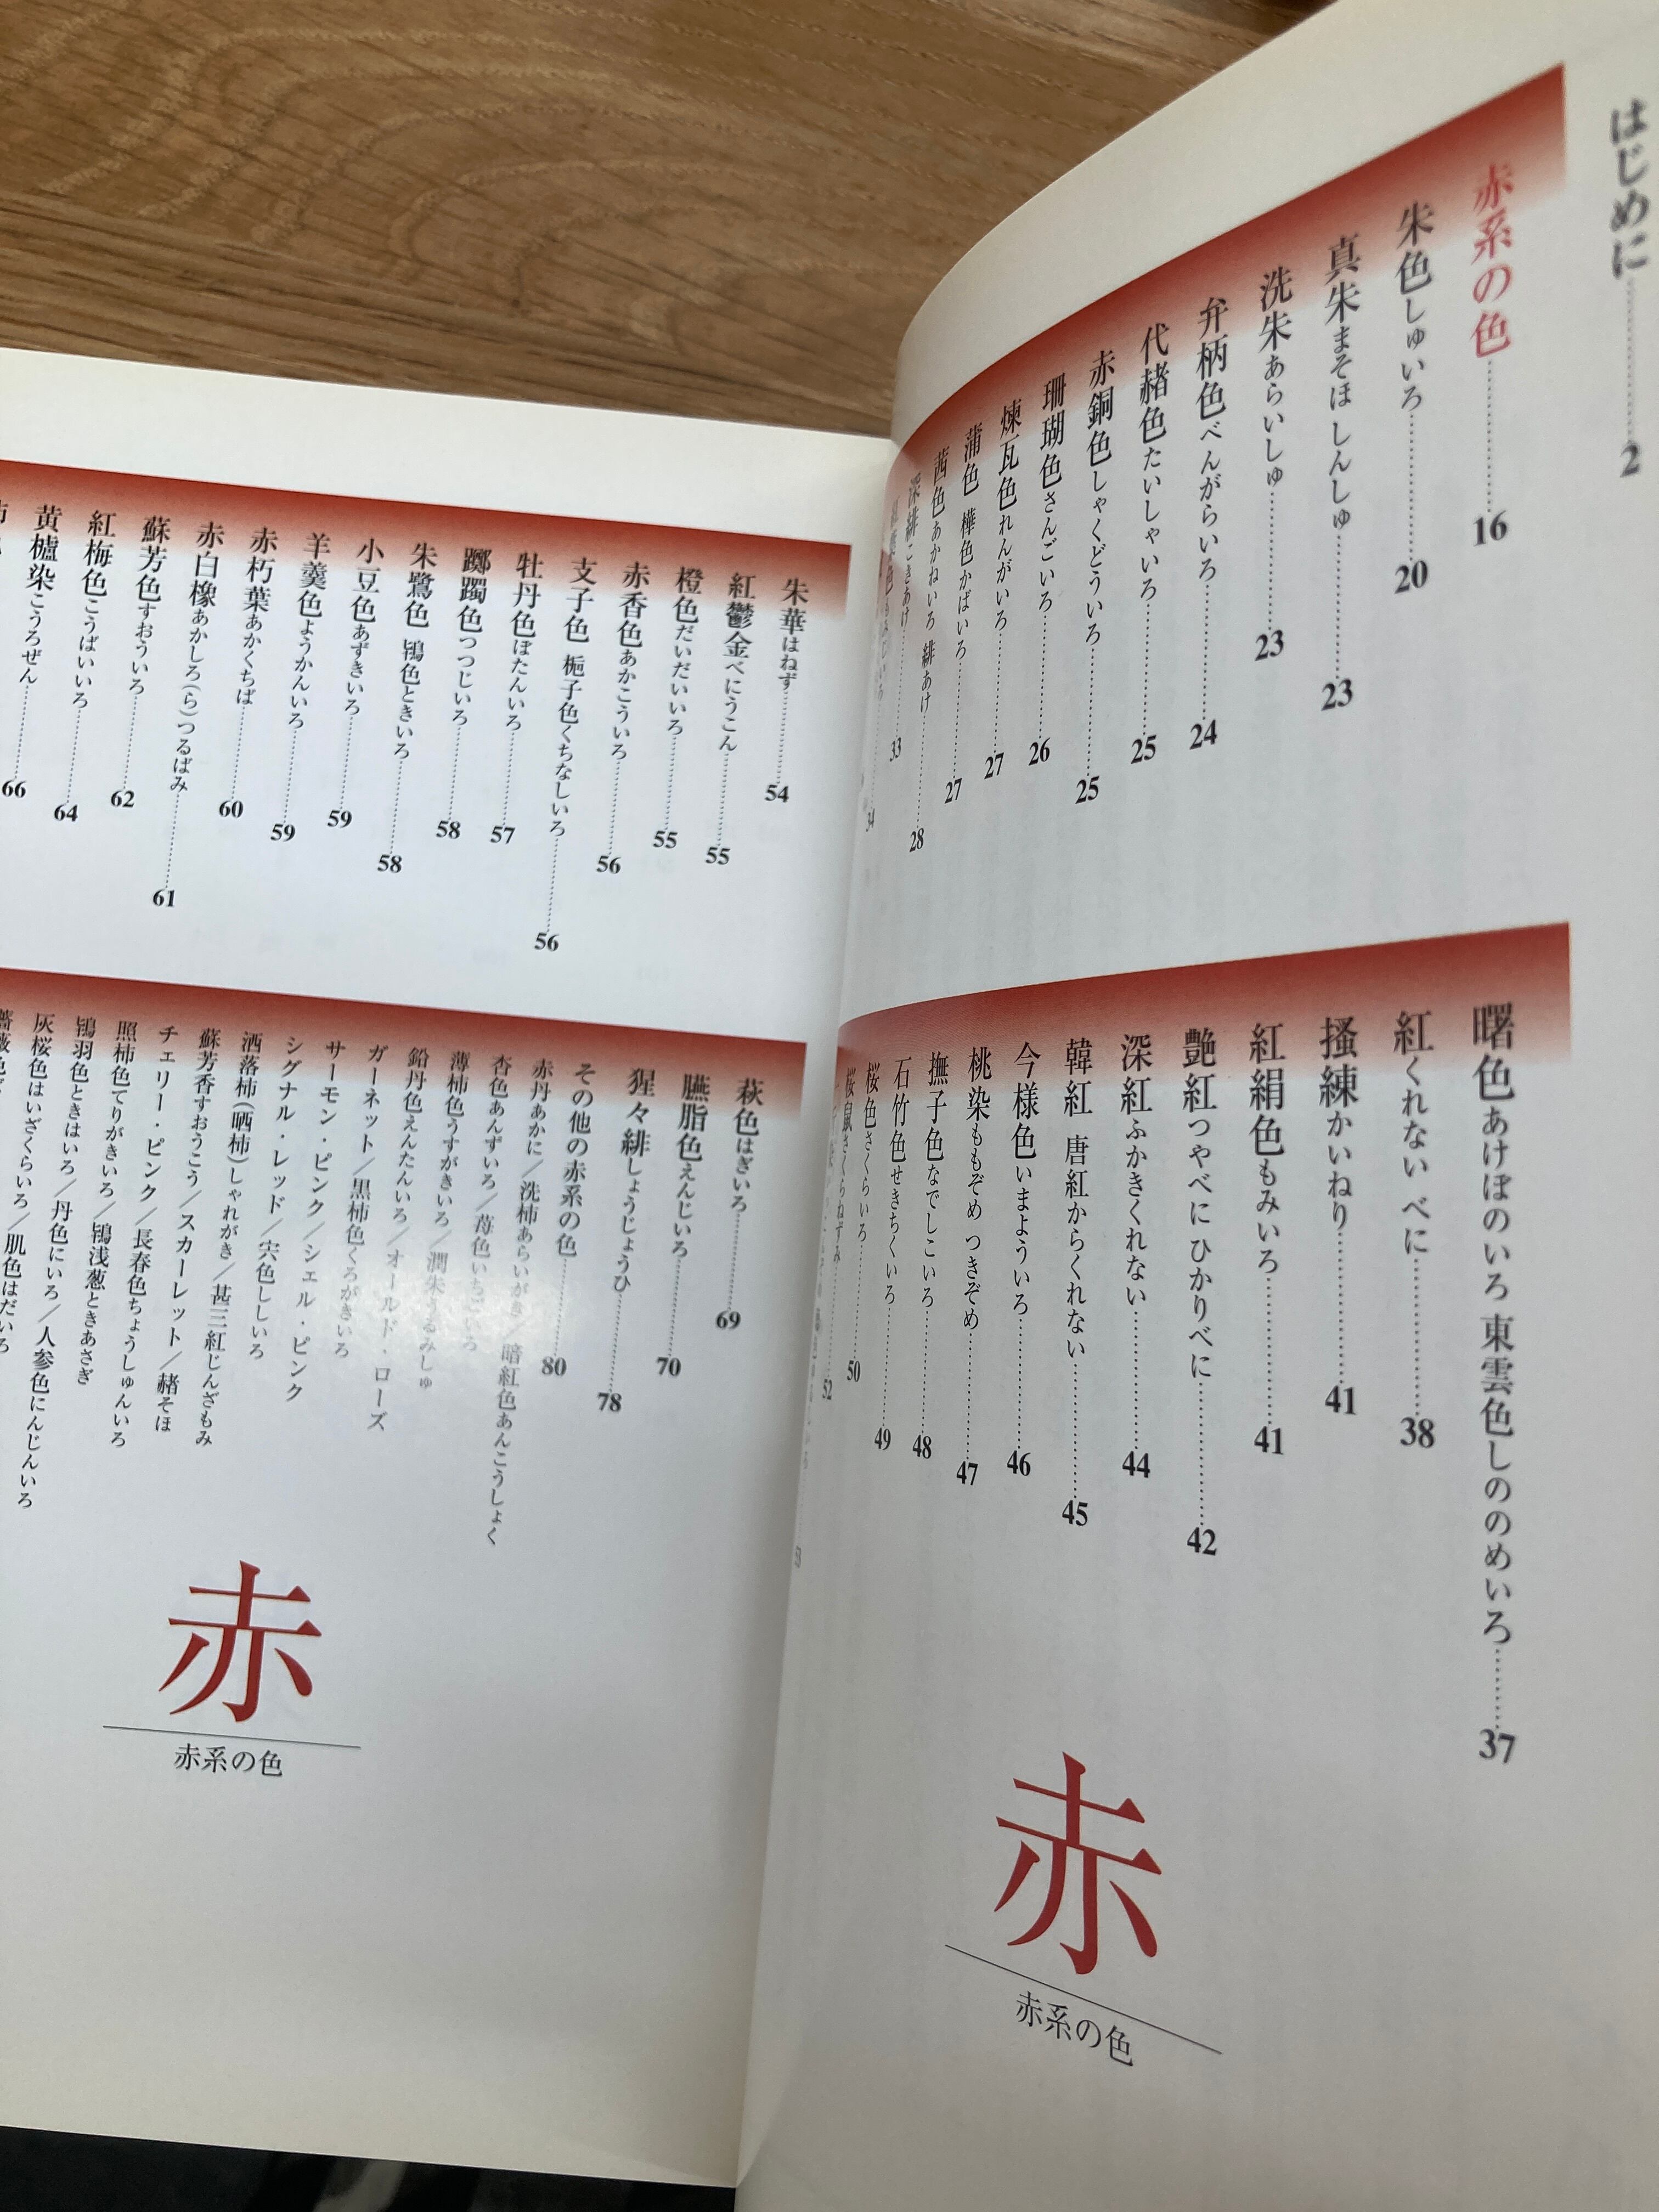 はじめに 2
赤系の色 16
朱色しゅいろ 20
真朱まそほ しんしゅ 23
洗朱あらいしゅ 23
弁柄色べんがらいろ 24
代赭色たいしゃいろ 25
赤銅色しゃくどういろ 25
珊瑚色さんごいろ 26
煉瓦色れんがいろ 27
蒲色 樺色かばいろ 27
茜色あかねいろ 緋あけ 28
深緋こきあけ 33
34
曙色あけぼのいろ 東雲色しののめいろ 37
紅くれない べに 38
掻練かいねり 41
紅絹色もみいろ 41
艶紅つやべに ひかりべに 42
深紅ふかきくれない 44
韓紅 唐紅からくれない 45
今様色いまよういろ 46
桃染ももぞめ つきぞめ 47
撫子色なでしこいろ 48
石竹色せきちくいろ 49
桜色さくらいろ 50
桜鼠さくらねずみ 52
53
赤
赤系の色
朱華はねず 54
紅鬱金べにうこん 55
橙色だいだいいろ 55
赤香色あかこういろ 56
支子色 梔子色くちなしいろ 56
牡丹色ぼたんいろ 57
躑躅色つつじいろ 58
朱鷺色 鴇色ときいろ 58
小豆色あずきいろ 59
羊羹色ようかんいろ 59
赤朽葉あかくちば 60
赤白橡あかしろ(ら)つるばみ 61
蘇芳色すおういろ 62
紅梅色こうばいいろ 64
黄櫨染こうろぜん 66
萩色はぎいろ 69
臙脂色えんじいろ 70
猩々緋しょうじょうひ 78
その他の赤系の色 80
赤丹あかに／洗柿あらいがき／暗紅色あんこうしょく
杏色あんずいろ／苺色いちごいろ
薄柿色うすがきいろ／潤朱うるみしゅ
鉛丹色えんたんいろ／オールド・ローズ
ガーネット／黒柿色くろがきいろ
サーモン・ピンク／シェル・ピンク
シグナル・レッド／宍色ししいろ
洒落柿(晒柿)しゃれがき／甚三紅じんざもみ
蘇芳香すおうこう／スカーレット／赭そほ
チェリー・ピンク／長春色ちょうしゅんいろ
照柿色てりがきいろ／鴇浅葱ときあさぎ
鴇羽色ときはいろ／丹色にいろ／人参色にんじんいろ
灰桜色はいざくらいろ／肌色はだいろ
赤
赤系の色